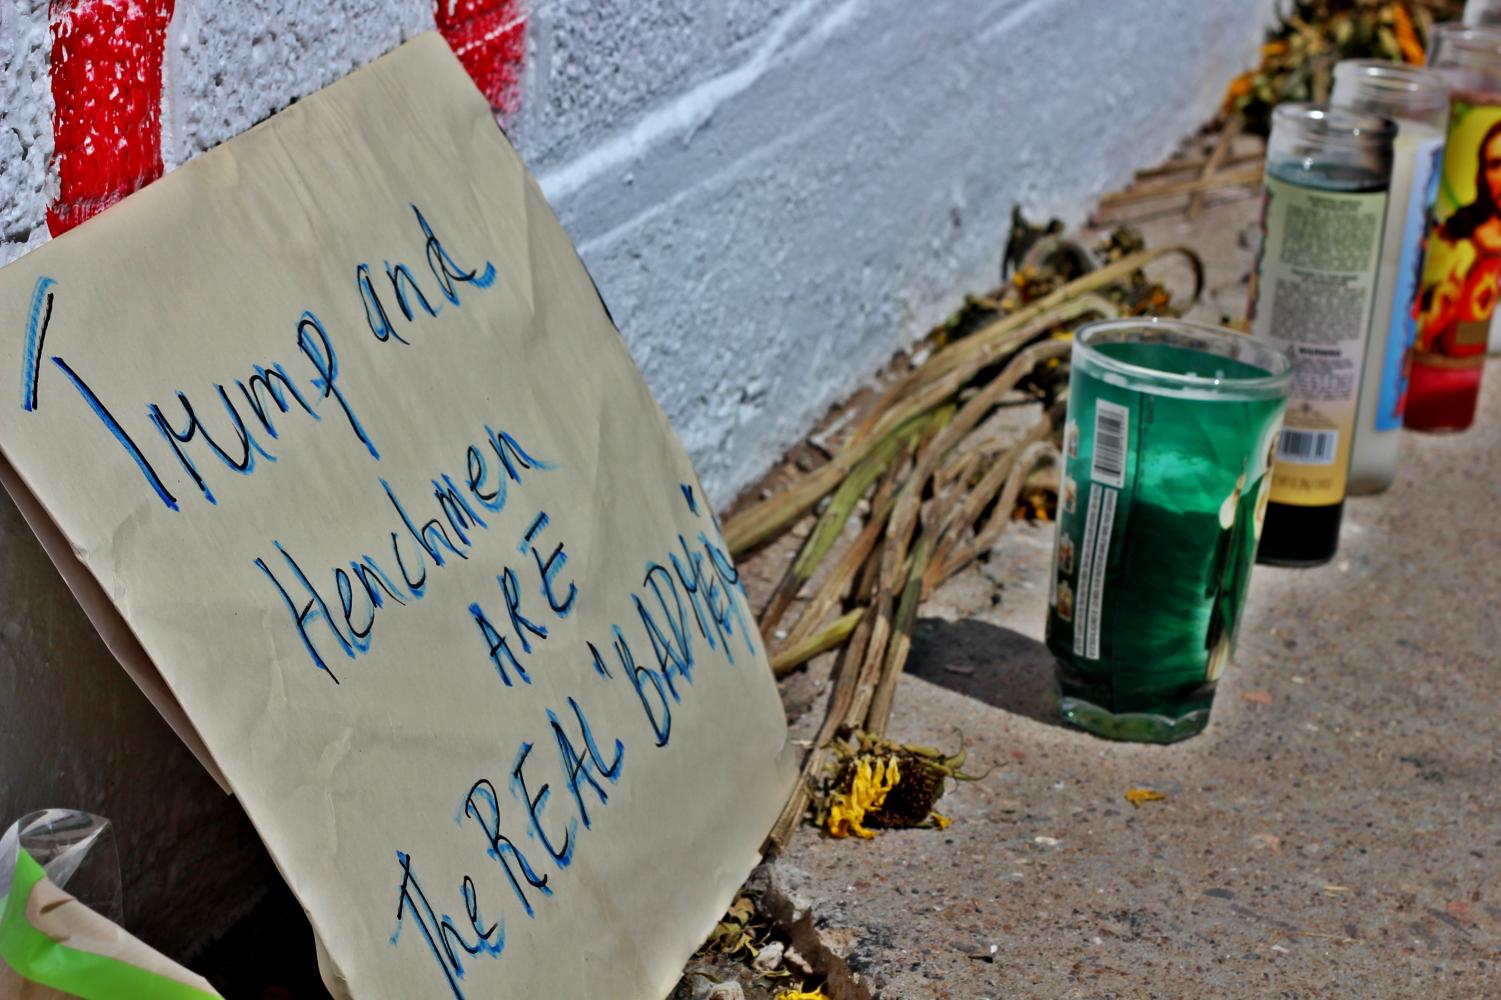 Trump and
Henchmen
ARE
The REAL "BADMEN"